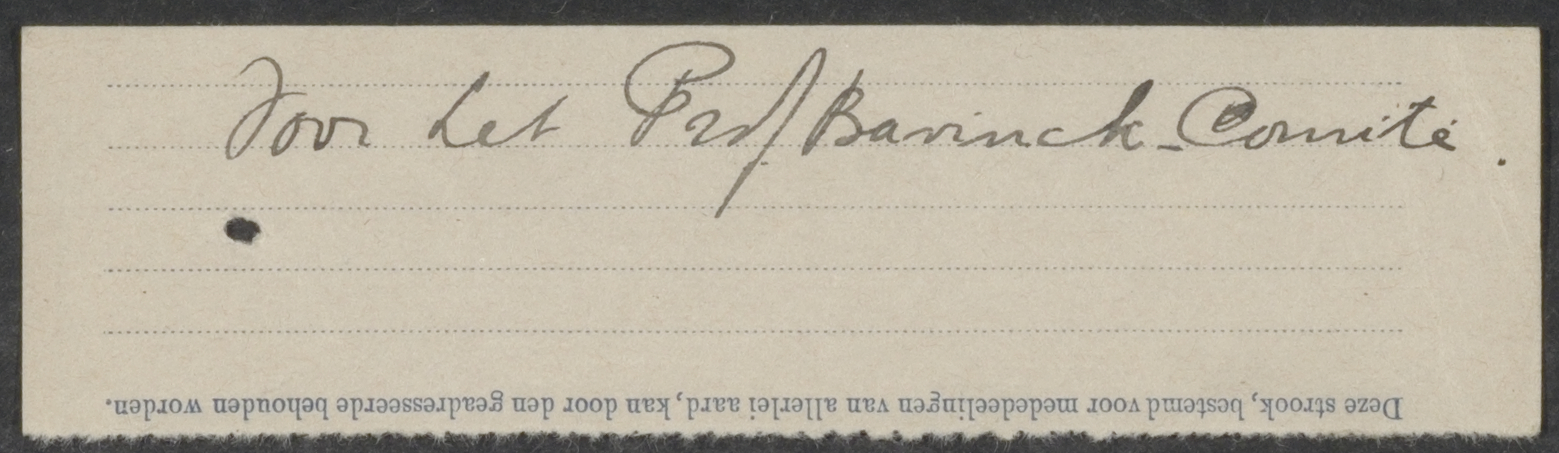 Voor het Prof Bavinck-Comité.
Deze strook, bestemd voor mededeelingen van allerlei aard, kan door den geadresseerde behouden worden.